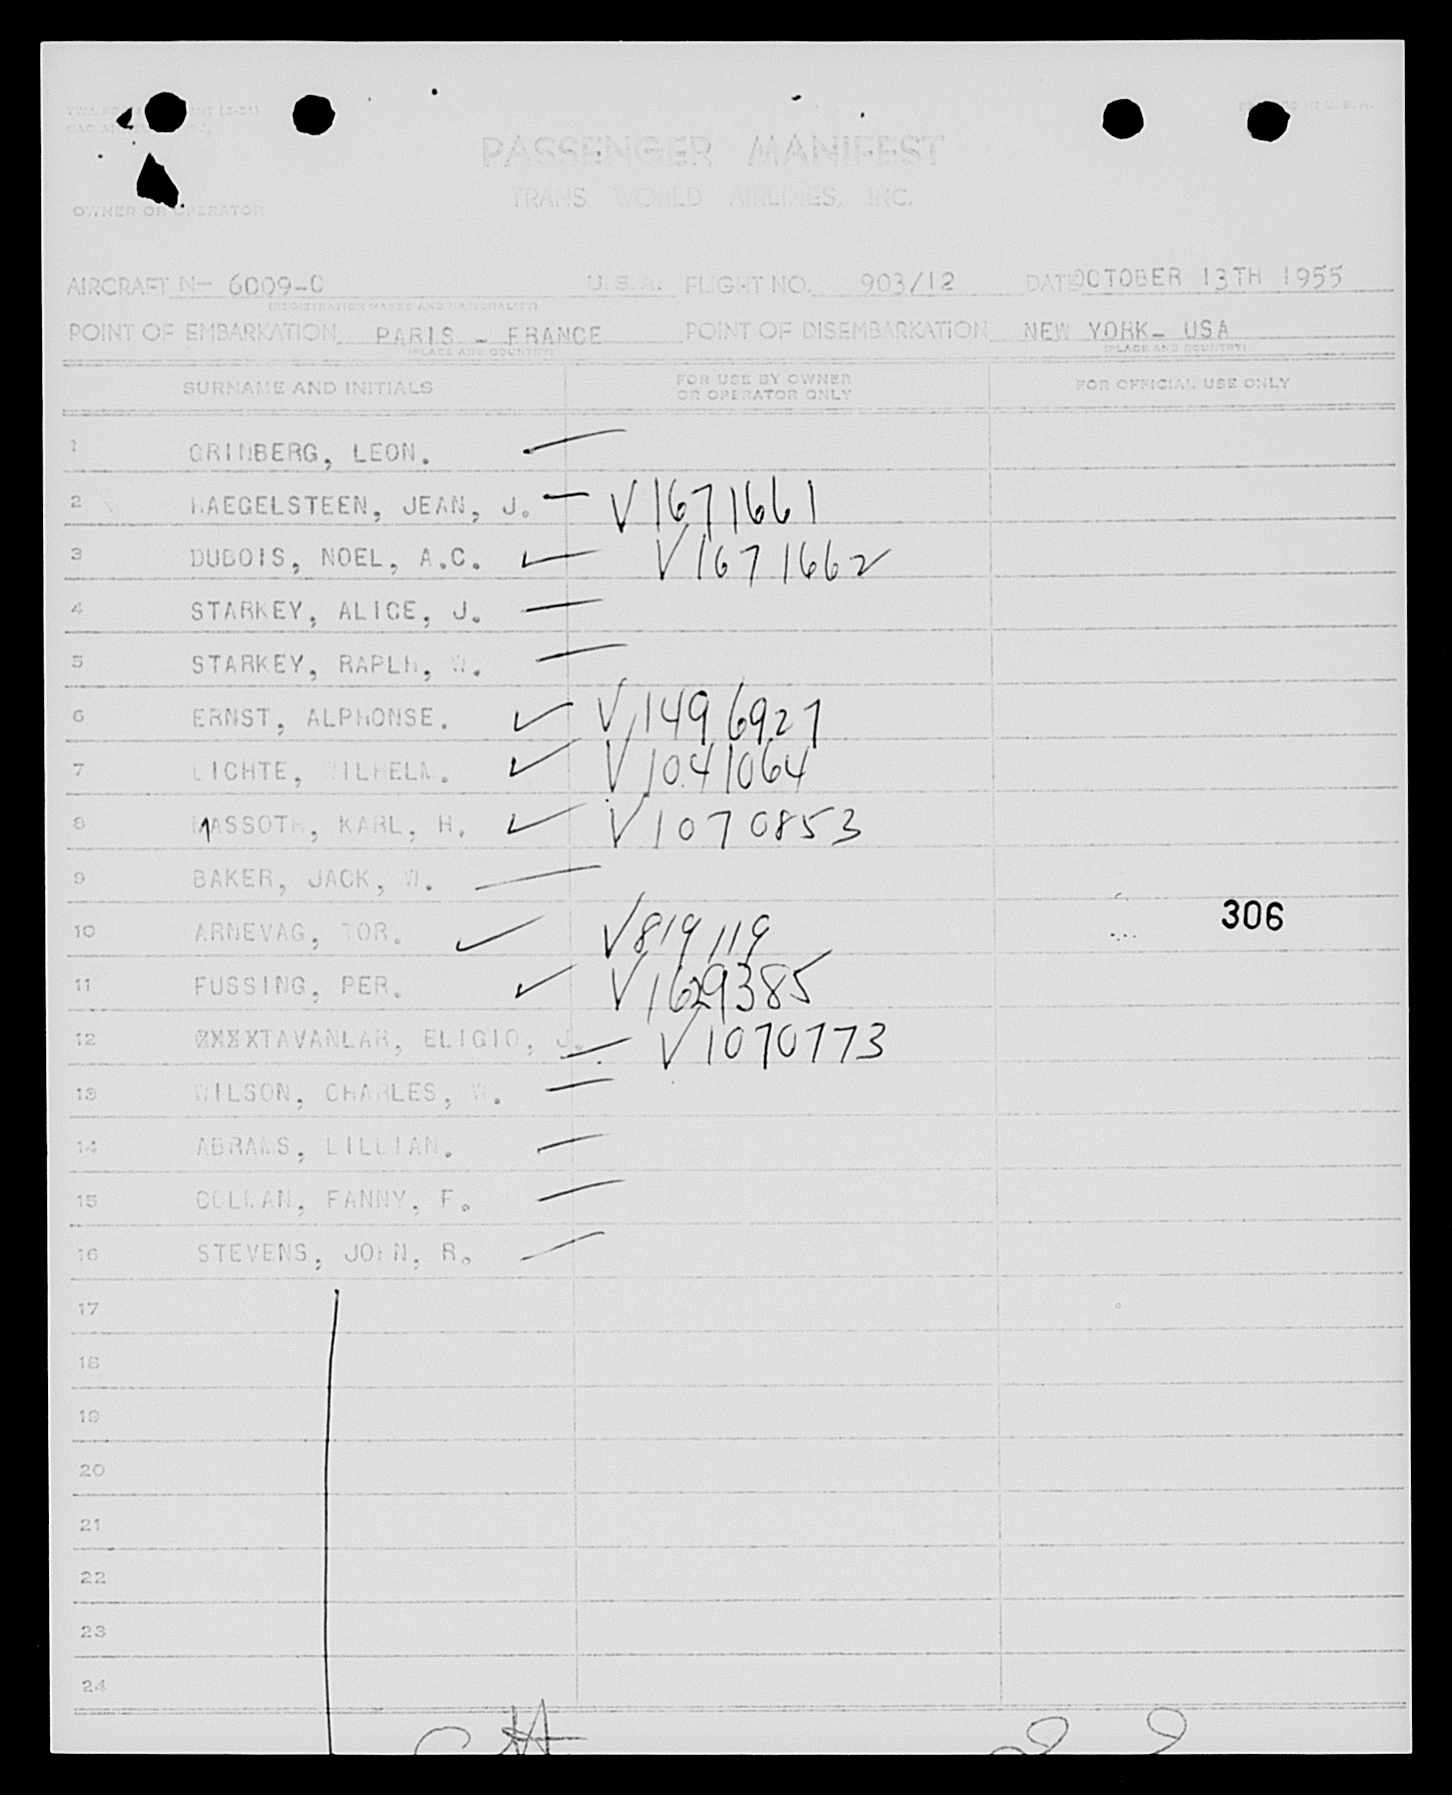 PASSENGER MANIFEST
TRANS WORLD AIRLINES, INC.
OWNER OR OPERATOR
AIRCRAFT N- 6009-C U.S.A. FLIGHT NO. 903/12 DATE OCTOBER 13TH 1955
(REGISTRATION MARKS AND NATIONALITY)
POINT OF EMBARKATION PARIS - FRANCE POINT OF DISEMBARKATION NEW YORK- USA
(PLACE AND COUNTRY) (PLACE AND COUNTRY)
SURNAME AND INITIALS FOR USE BY OWNER OR OPERATOR ONLY FOR OFFICIAL USE ONLY
1 GRINBERG, LEON.
2 HAEGELSTEEN, JEAN, J. V1671661
3 DUBOIS, NOEL, A.C. V1671662
4 STARKEY, ALICE, J.
5 STARKEY, RAPLH, W.
6 ERNST, ALPHONSE. V1496927
7 LICHTE, WILHELM. V1041064
8 MASSOTH, KARL, H. V1070853
9 BAKER, JACK, W.
10 ARNEVAG, TOR. V819119 306
11 FUSSING, PER. V1629385
12 XXXXTAVANLAR, ELIGIO, J. V1070773
13 WILSON, CHARLES, W.
14 ABRAMS, LILLIAN.
15 COLMAN, FANNY, F.
16 STEVENS, JOHN, R.
17
18
19
20
21
22
23
24